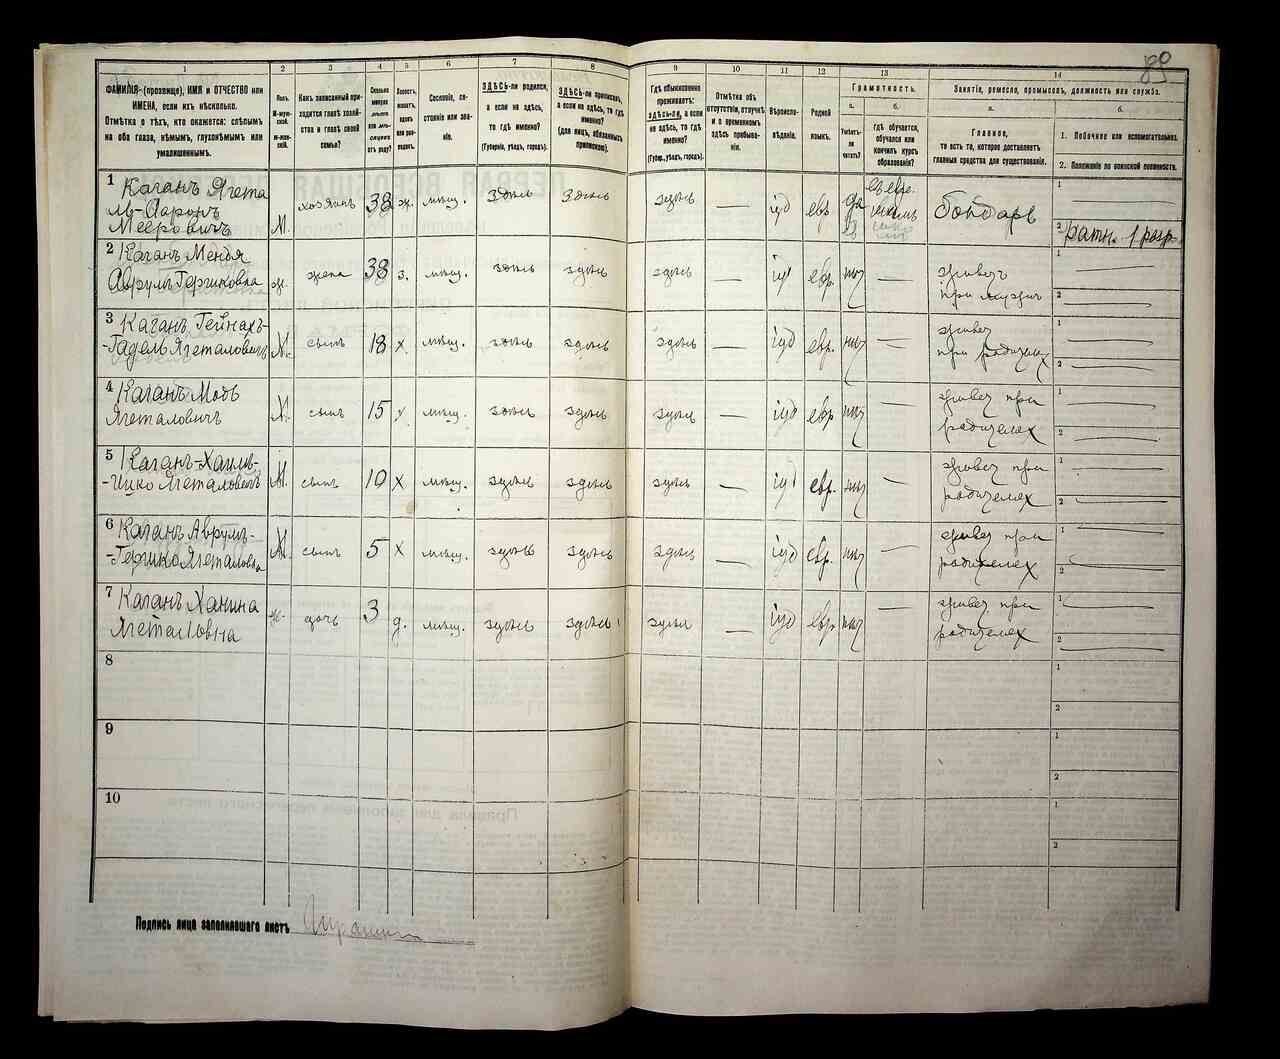 89
1
2
3
4
5
6
7
8
9
10
11
12
13
14
ФАМИЛІЯ (прозвище), ИМЯ и ОТЧЕСТВО или
ИМЕНА, если ихъ нѣсколько.
Отмѣтка о тѣхъ, кто окажется: слѣпымъ
на оба глаза, нѣмымъ, глухонѣмымъ или
умалишеннымъ.
Полъ.
М-мужской.
Ж-женскій.
Какъ записанный приходится главѣ хозяйства и главѣ своей семьи?
Сословіе, состояніе или званіе.
ЗДѢСЬ-ли родился,
а если не здѣсь,
то гдѣ именно?
(Губернія, уѣздъ, городъ).
ЗДѢСЬ-ли приписанъ,
а если не здѣсь, то гдѣ
именно?
(для лицъ, обязанныхъ
припискою).
Гдѣ обыкновенно
проживаетъ:
ЗДѢСЬ-ли, а если
не здѣсь, то гдѣ
именно?
(Губер., уѣздъ, городъ).
Отмѣтка объ
отсутствіи, отлучкѣ
и о временномъ
здѣсь пребываніи.
Вѣроисповѣданіе.
Родной
языкъ.
Грамотность.
а.
Умѣетъ-ли
читать?
б.
гдѣ обучается,
обучался или
кончилъ курсъ
образованія?
Занятіе, ремесло, промыселъ, должность или служба.
а.
Главное,
то есть то, которое доставляетъ
главныя средства для существованія.
б.
1. Побочное или вспомогательное.
2. Положеніе по воинской повинности.
1 Каганъ Ягета
ль-Ааронъ
Мееровичъ
М.
хозяинъ
38
ж.
мѣщ.
здѣсь
здѣсь
здѣсь
—
іуд
евр
да
бондарь
1
2 ратн. 1 разр.
2 Каганъ Менья
Аврумъ Гершковна
ж.
жена
38
з.
мѣщ.
здѣсь
здѣсь
здѣсь
—
іуд
евр.
нѣт
—
живет
при мужѣ
1
2
3 Каганъ Гейнахъ-
-Гадель Ягеталовичъ
М.
сынъ
18
х
мѣщ.
здѣсь
здѣсь
здѣсь
—
іуд
евр.
нѣт
—
живет
при родителях
1
2
4 Каганъ Мовъ
Ягеталовичъ
М.
сынъ
15
х
мѣщ.
здѣсь
здѣсь
здѣсь
—
іуд
евр
нѣт
—
живет при
родителях
1
2
5 Каганъ-Хаимъ-
-Ицко Ягеталовичъ
М.
сынъ
10
х
мѣщ.
здѣсь
здѣсь
здѣсь
—
іуд
евр.
нѣт
—
живет при
родителях
1
2
6 Каганъ Аврумъ-
-Гершко Ягеталовичъ
М.
сынъ
5
х
мѣщ.
здѣсь
здѣсь
здѣсь
—
іуд
евр.
нѣт
—
живет при
родителях
1
2
7 Каганъ Ханина
Ягеталовна
ж.
дочь
3
д.
мѣщ.
здѣсь
здѣсь
здѣсь
—
іуд
евр.
нѣт
—
живет при
родителях
1
2
8
1
2
9
1
2
10
1
2
Подпись лица заполнившаго листъ